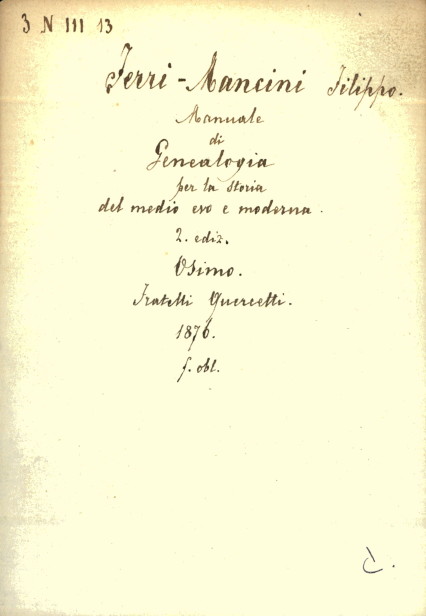 3 N III 13
Ferri-Mancini Filippo.
Manuale
di
Genealogia
per la storia
del medio evo e moderna.
2. ediz.
Osimo.
Fratelli Quercetti.
1876.
f. obl.